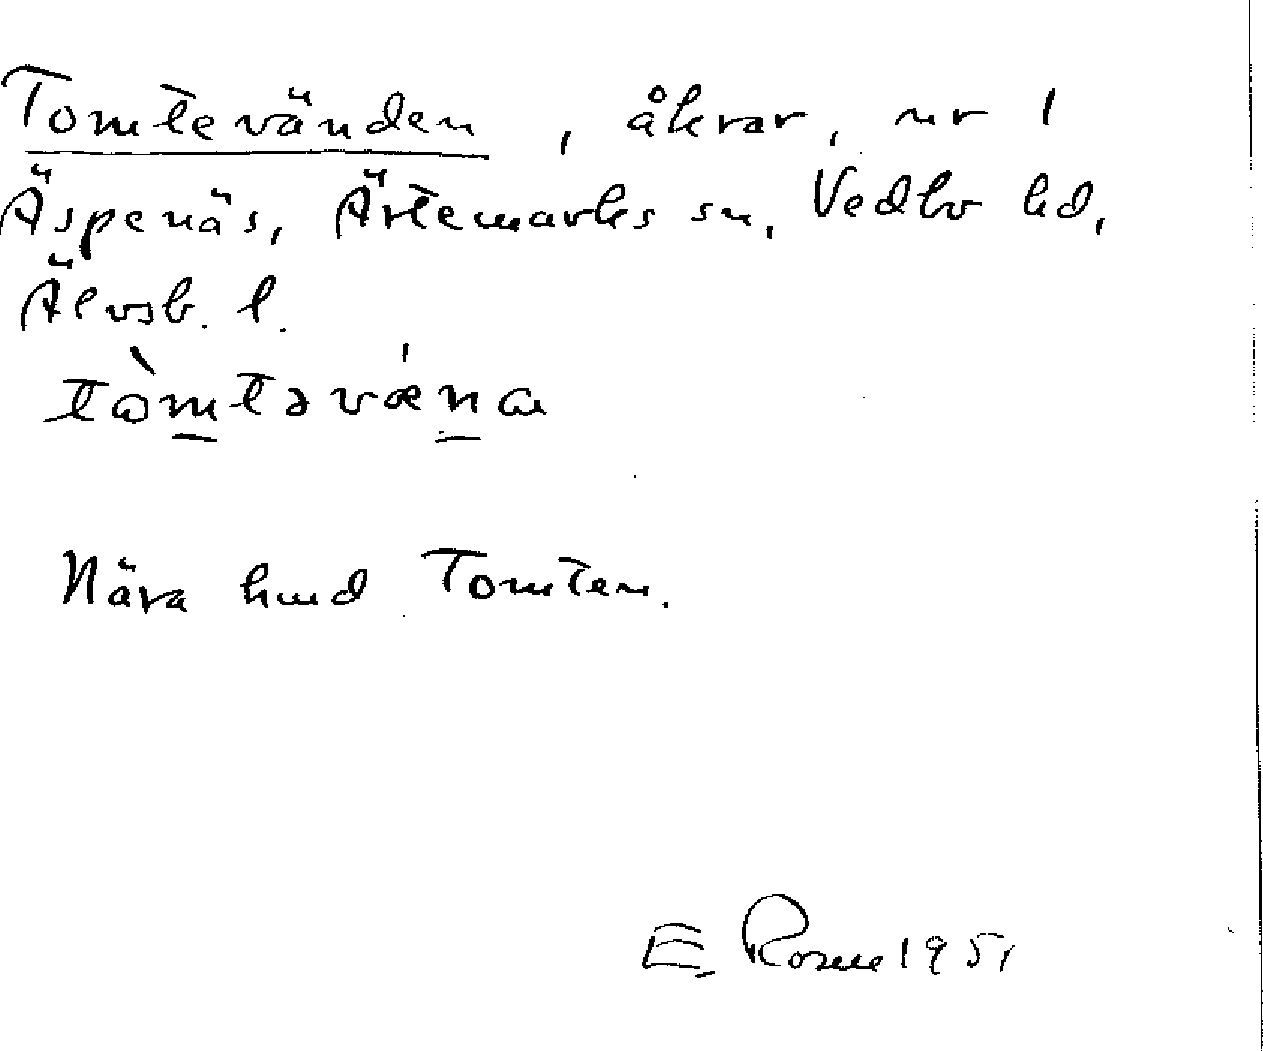 Tomtevänden, åkrar, nr 1
Äspenäs, Ärtemarks sn, Vedbo hd,
Älvsb. l.
tòmtəvæ'na
Nära hmd Tomten.
E. Rosne 1951